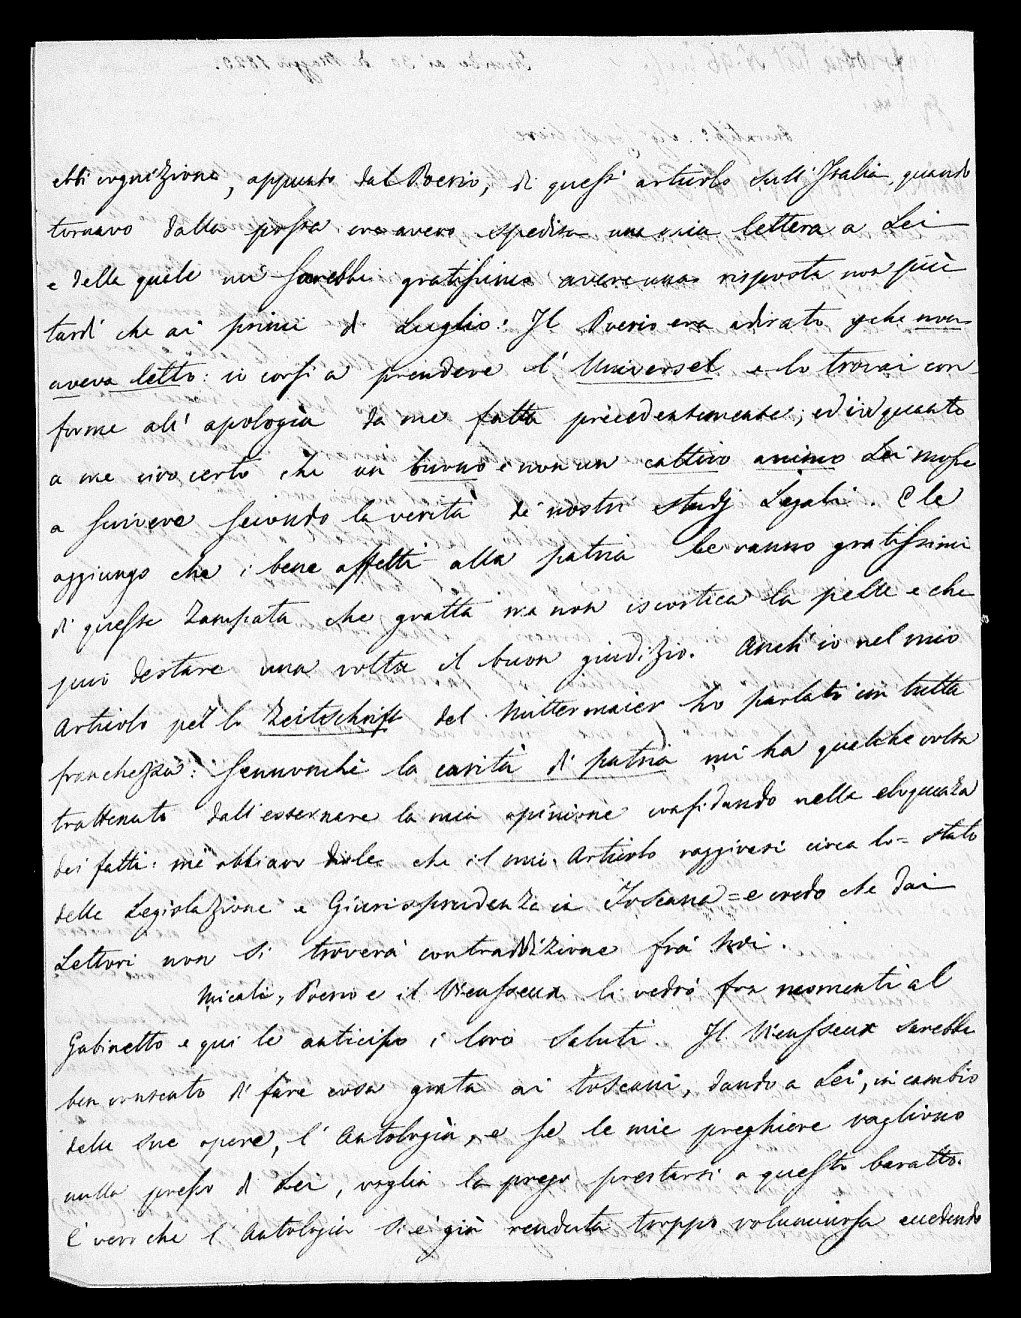 ebbi cognizione, appunto dal Poerio, di questi articolo sull'Italia, quando
tornavo dalla posta ove avevo spedita una mia lettera a Lei
e della quale mi sarebbe gratissimo avere una risposta non più
tardi che ai primi di Luglio: Il Poerio era adirato che non
aveva letto: io corsi a prendere l'Universel e lo trovai con
forme all'apologia da me fatta precedentemente; ed in quanto
a me vivo certo che un buono e non un cattivo animo Lei mosse
a scrivere secondo la verità de' nostri studj Legali. E le
aggiungo che i bene affetti alla patria le vanno gratissimi
di questa zampata che gratta ma non iscortica la pelle e che
può destare una volta il buon giudizio. Anch'io nel mio
Articolo pel lo Zeitschrift del Mittermaier ho parlato con tutta
franchezza: Sennonchè la carità di patria mi ha qualche volta
trattenuto dall'esternare la mia opinione confidando nella eloquenza
dei fatti: me abbiavo dirle che il mio Articolo raggirasi circa lo = stato
della Legislazione e Giurisprudenza in Toscana = e credo che dai
Lettori non si troverà contraddizione frà Noi.
Micali, Poerio e il Vieusseux li vedrò fra momenti al
Gabinetto e qui le anticipo i loro saluti. Il Vieusseux sarebbe
ben contento di fare cosa grata ai toscani, dando a Lei, in cambio
delle sue opere, l'Antologia, e se le mie preghiere vagliono
nulla presso di Lei, voglia la prego prestarsi a questo baratto.
È vero che l'Antologia si è già renduta troppo voluminosa eccedendo